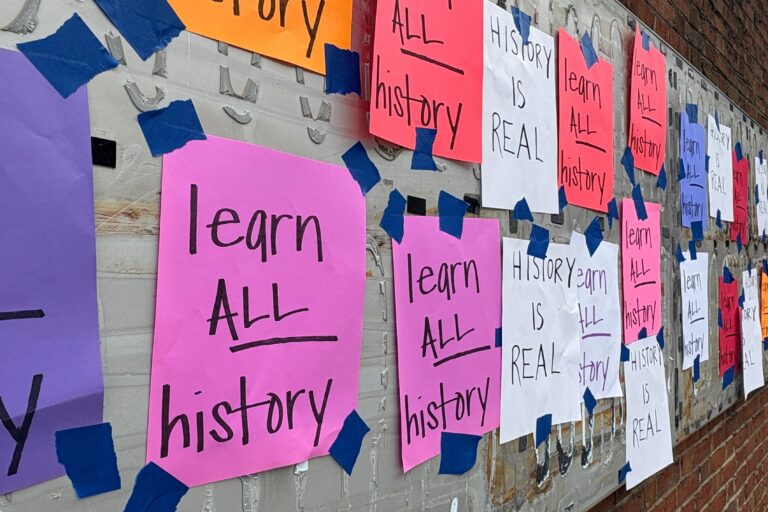 history
y
learn
ALL
history
learn
ALL
history
ALL
history
HISTORY
IS
REAL
learn
ALL
history
learn
ALL
history
HISTORY
IS
REAL
learn
ALL
history
learn
ALL
history
HISTORY
IS
REAL
learn
ALL
history
HISTORY
IS
REAL
learn
ALL
history